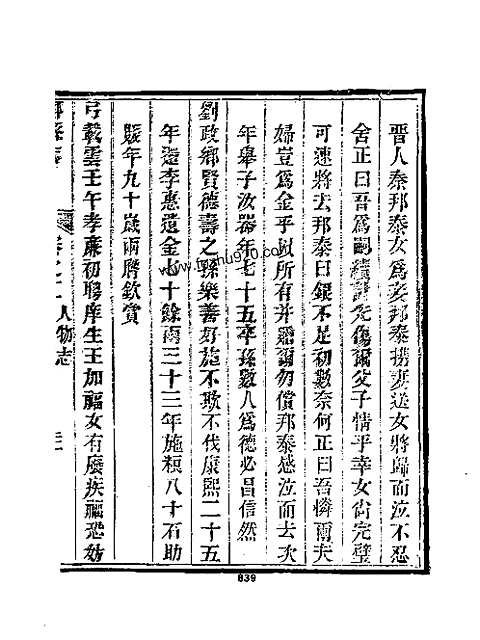 晋人秦邦泰女為妾邦泰撈妻送女將歸而泣不忍
舍正曰吾為嗣續計先傷爾父子情乎幸女尚完璧
可速將去邦泰曰銀不足初數奈何正曰吾憐爾夫
婦豈為金乎以所有并贈爾勿償邦泰感泣而去次
年舉子汝器年七十五卒孫數人為德必昌信然
劉政鄉賢德壽之孫樂善好施不欺不伐康熙二十五
年還李惠遺金七十餘兩三十三年施粟八十石助
賑年九十歲兩膺欽賞
弓載雲壬午孝廉初聘庠生王加福女有廢疾福恐妨
人物志
www.fenhu910.com
839